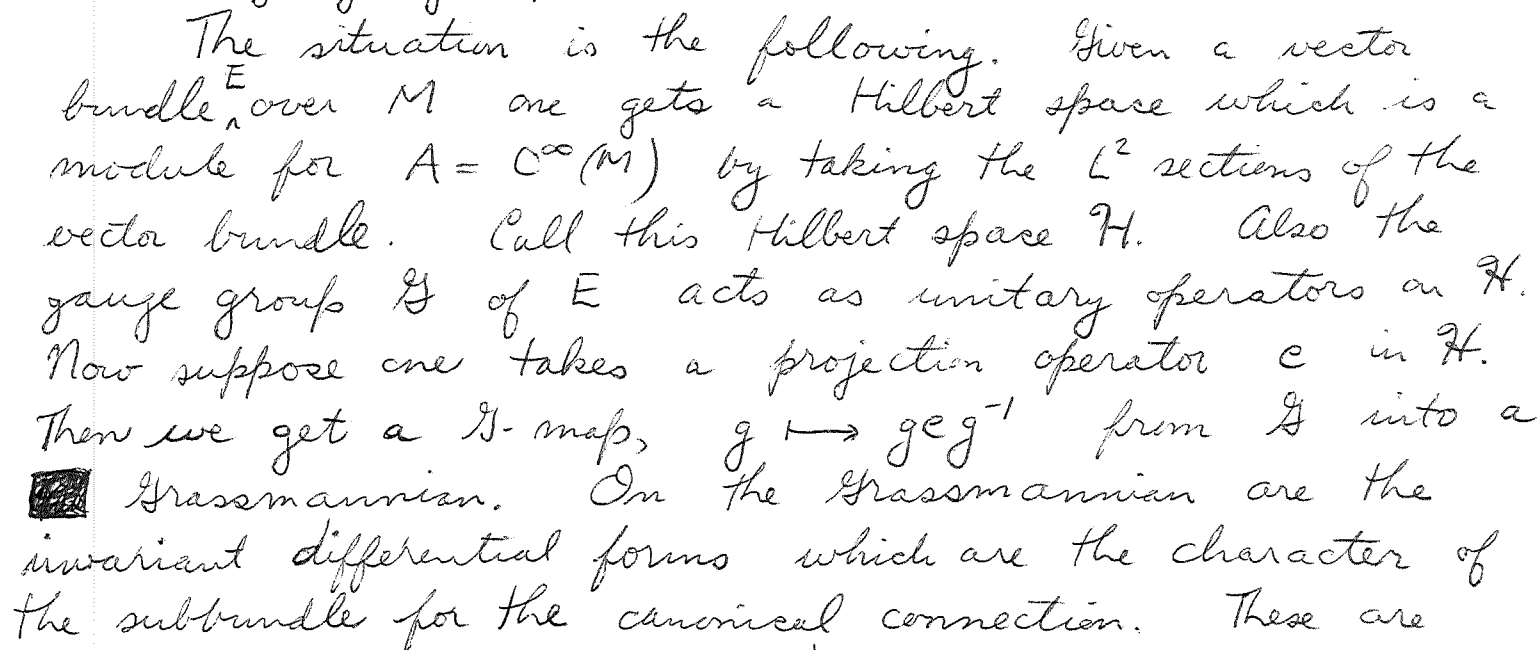 The situation is the following. Given a vector
bundle E over M one gets a Hilbert space which is a
module for A = C^∞(M) by taking the L² sections of the
vector bundle. Call this Hilbert space ℋ. Also the
gauge group 𝒢 of E acts as unitary operators on ℋ.
Now suppose one takes a projection operator e in ℋ.
Then we get a 𝒢-map, g ⟼ geg⁻¹ from 𝒢 into a
Grassmannian. On the Grassmannian are the
invariant differential forms which are the character of
the subbundle for the canonical connection. These are